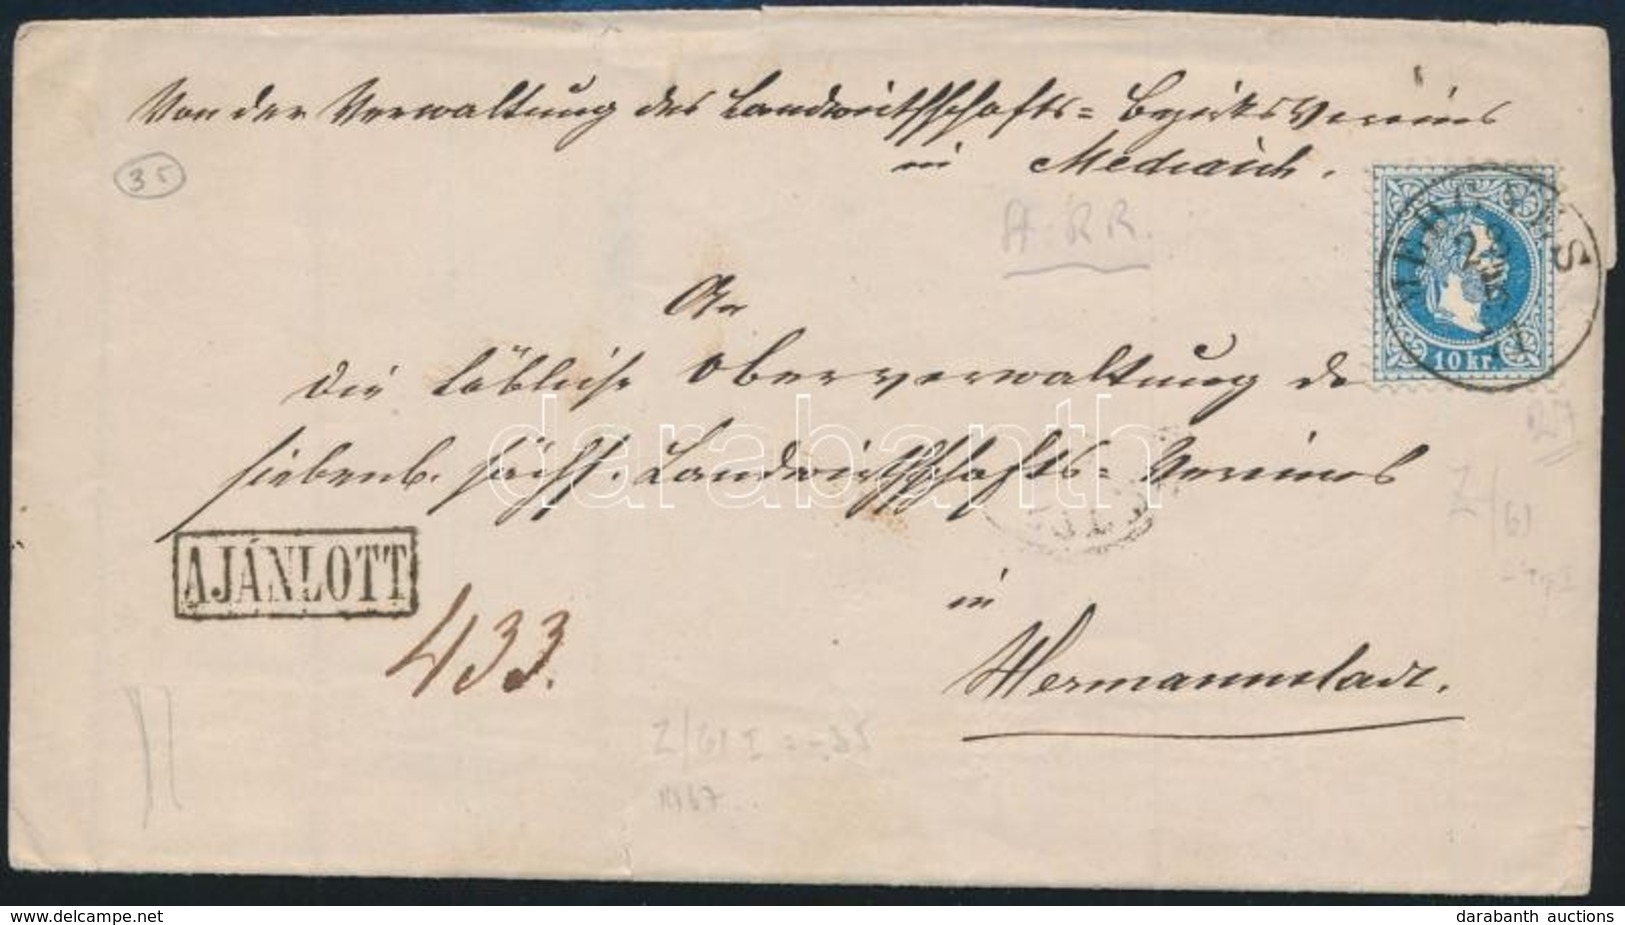 Von der Verwaltung des Landwirthschafts= Bezirks Vereins
in Mediasch.
35
A. RR.
MEDGYES
23
71
10 kr.
An
die löbliche Oberverwaltung des
siebenb. sächs. Landwirthschafts= Vereines
darabanth
Z/61
AJÁNLOTT
433.
in
Hermannstadt.
Z/61 I
delcampe.net
darabanth auctions